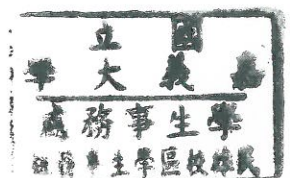 國立
嘉義大學
學生事務處
民雄校區學生